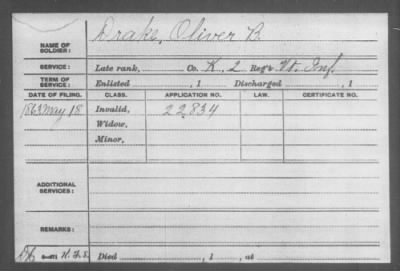 NAME OF SOLDIER: Drake, Oliver B.
SERVICE: Late rank, Co. K, 2 Reg't Vt. Inf.
TERM OF SERVICE: Enlisted , 1 Discharged , 1
DATE OF FILING. CLASS. APPLICATION NO. LAW. CERTIFICATE NO.
1863 May 18 Invalid, 22,834
Widow,
Minor,
ADDITIONAL SERVICES:
REMARKS:
Died , 1 , at